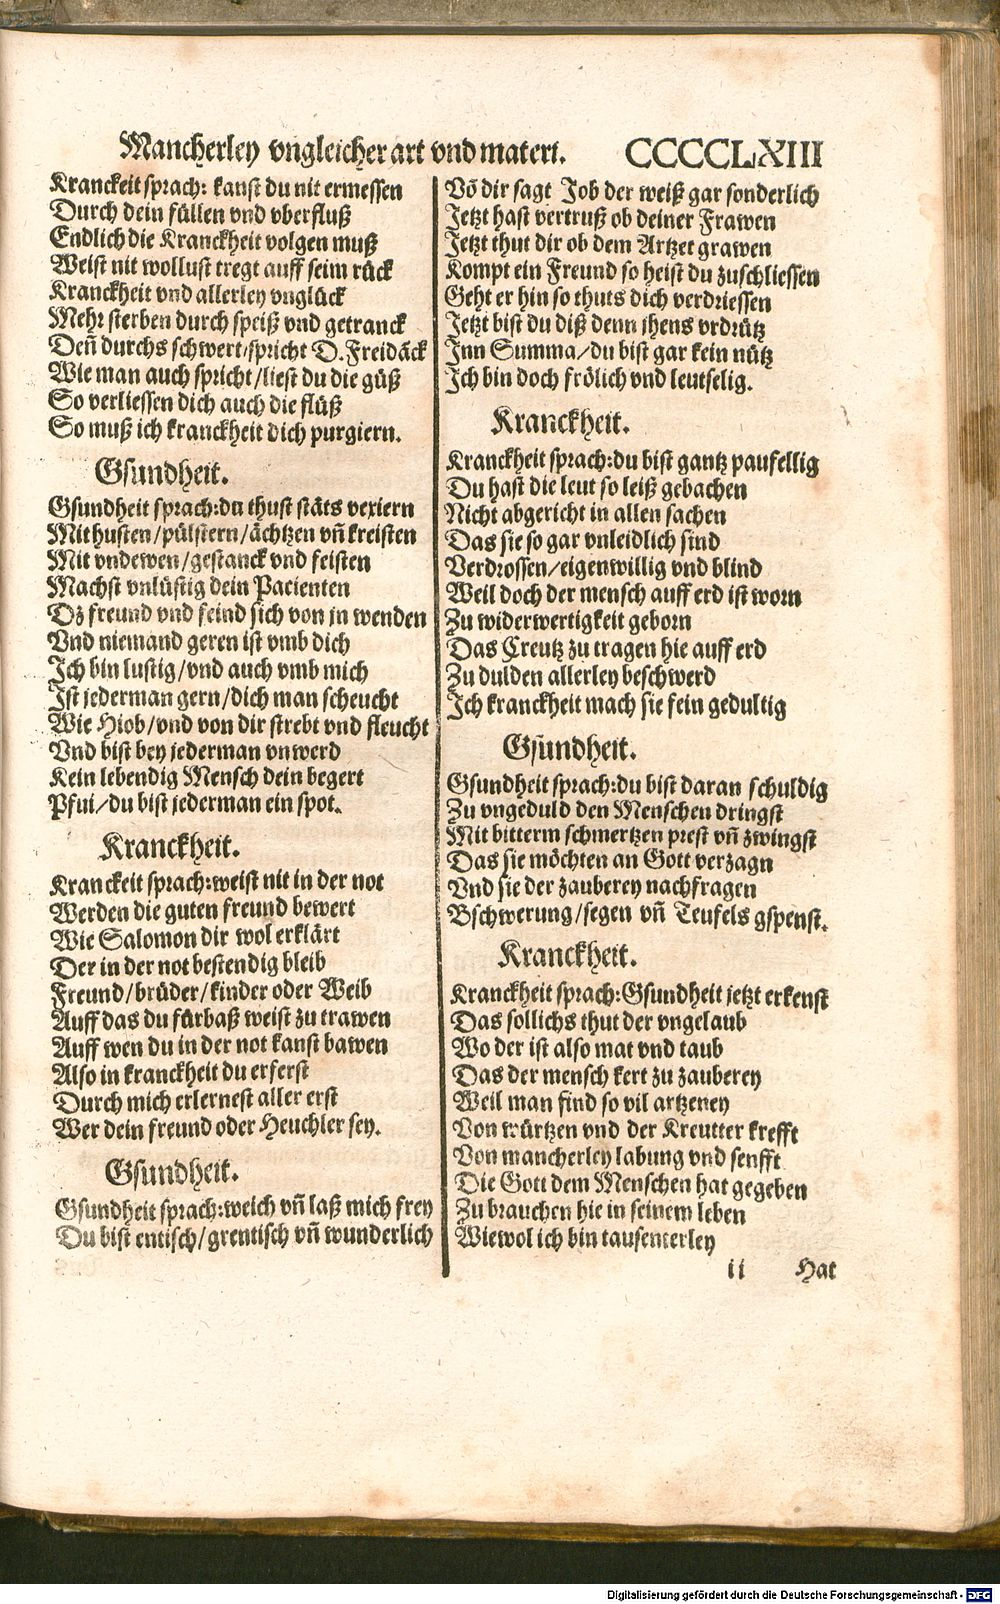 Mancherley vngleicher art vnd materi. CCCCCLXIII
Kranckeit sprach: kanst du nit ermessen
Durch dein füllen vnd vberfluß
Endlich die Kranckheit volgen muß
Weist nit wollust tregt auff seim rück
Kranckheit vnd allerley vnglück
Mehr sterben durch speiß vnd getranck
Deñ durchs schwert/spricht D. Freidäck
Wie man auch spricht/liest du die güß
So verliessen dich auch die flüß
So muß ich kranckheit dich purgiern.
Gsundheit.
Gsundheit sprach:du thust stäts vexiern
Mit husten/pülstern/ächtzen vñ kreisten
Mit vndewen/gestanck vnd feisten
Machst vnlüstig dein Pacienten
Dz freund vnd feind sich von jn wenden
Vnd niemand geren ist vmb dich
Ich bin lustig/vnd auch vmb mich
Ist jederman gern/dich man scheucht
Wie Hiob/vnd von dir strebt vnd fleucht
Vnd bist bey jederman vnwerd
Kein lebendig Mensch dein begert
Pfui/du bist jederman ein spot.
Kranckheit.
Kranckeit sprach:weist nit in der not
Werden die guten freund bewert
Wie Salomon dir wol erklärt
Der in der not bestendig bleib
Freund/brüder/kinder oder Weib
Auff das du fürbaß weist zu trawen
Auff wen du in der not kanst bawen
Also in kranckheit du erferst
Durch mich erlernest aller erst
Wer dein freund oder Heuchler sey.
Gsundheit.
Gsundheit sprach:weich vñ laß mich frey
Du bist entisch/grentisch vñ wunderlich
Võ dir sagt Job der weiß gar sonderlich
Jetzt hast vertruß ob deiner Frawen
Jetzt thut dir ob dem Artzet grawen
Kompt ein Freund so heist du zuschliessen
Geht er hin so thuts dich verdriessen
Jetzt bist du diß denn jhens vrdrütz
Inn Summa/du bist gar kein nütz
Ich bin doch frölich vnd leutselig.
Kranckheit.
Kranckheit sprach:du bist gantz paufellig
Du hast die leut so leiß gebachen
Nicht abgericht in allen sachen
Das sie so gar vnleidlich sind
Verdrossen/eigenwillig vnd blind
Weil doch der mensch auff erd ist worn
Zu widerwertigkeit geborn
Das Creutz zu tragen hie auff erd
Zu dulden allerley beschwerd
Ich kranckheit mach sie fein gedultig
Gsundheit.
Gsundheit sprach:du bist daran schuldig
Zu vngeduld den Menschen dringst
Mit bitterm schmertzen prest vñ zwingst
Das sie möchten an Gott verzagn
Vnd sie der zauberey nachfragen
Bschwerung/segen vñ Teufels gspenst.
Kranckheit.
Kranckheit sprach:Gsundheit jetzt erkenst
Das sollichs thut der vngelaub
Wo der ist also mat vnd taub
Das der mensch kert zu zauberey
Weil man find so vil artzeney
Von würtzen vnd der Kreutter krefft
Von mancherley labung vnd senfft
Die Gott dem Menschen hat gegeben
Zu brauchen hie in seinem leben
Wiewol ich bin tausenterley
ii Hat
Digitalisierung gefördert durch die Deutsche Forschungsgemeinschaft - DFG